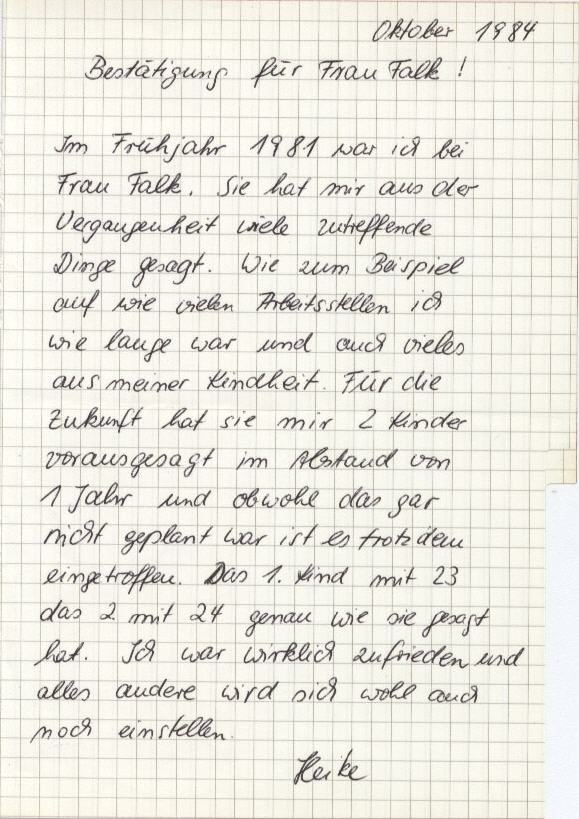 Oktober 1984
Bestätigung für Frau Falk!
Im Frühjahr 1981 war ich bei
Frau Falk. Sie hat mir aus der
Vergangenheit viele zutreffende
Dinge gesagt. Wie zum Beispiel
auf wie vielen Arbeitsstellen ich
wie lange war und auch vieles
aus meiner Kindheit. Für die
Zukunft hat sie mir 2 Kinder
vorausgesagt im Abstand von
1 Jahr und obwohl das gar
nicht geplant war ist es trotzdem
eingetroffen. Das 1. Kind mit 23
das 2. mit 24 genau wie sie gesagt
hat. Ich war wirklich zufrieden und
alles andere wird sich wohl auch
noch einstellen.
Heike